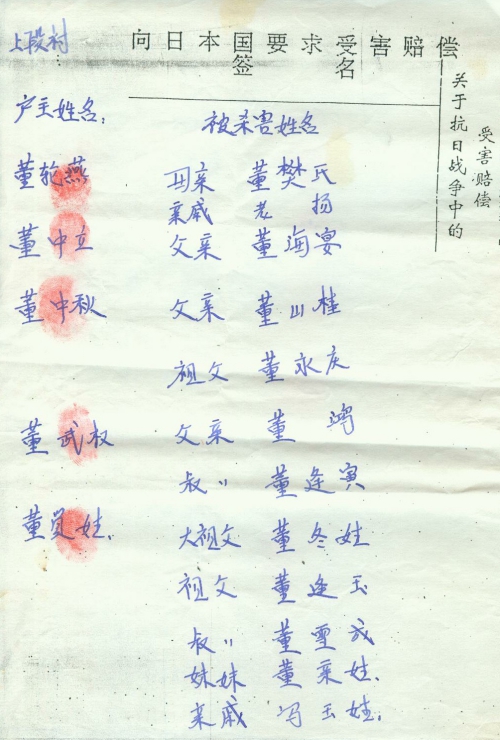 上段村
向日本国要求受害赔偿
签名
关于抗日战争中的
受害赔偿
户主姓名:
被杀害姓名
董乾燕 母亲 董樊氏
亲戚 老杨
董中立 父亲 董海宴
董中秋 父亲 董山桂
祖父 董永庆
董武权 父亲 董鸣
叔〃 董逢寅
董员娃. 大祖父 董冬娃
祖父 董逢玉
叔〃 董雪成
妹妹 董来娃.
亲戚 冯玉娃.